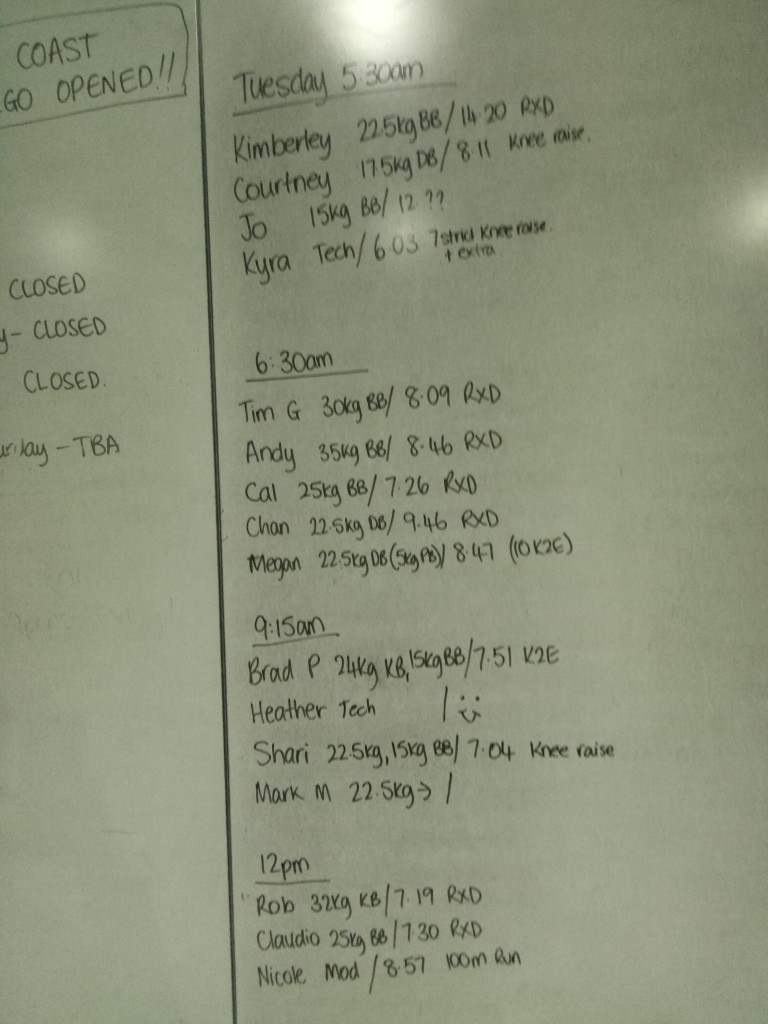 COAST
GO OPENED!!
CLOSED
y- CLOSED
CLOSED.
day - TBA
Tuesday 5:30am
Kimberley 22.5kg BB/ 14.20 RXD
Courtney 17.5kg DB/ 8.11 Knee raise.
Jo 15kg BB/ 12.??
Kyra Tech/ 6.03 7 strict Knee raise.
+ extra
6:30am
Tim G 30kg BB/ 8.09 RXD
Andy 35kg BB/ 8.46 RXD
Cal 25kg BB/ 7.26 RXD
Chan 22.5kg DB/ 9.46 RXD
Megan 22.5kg DB (5kg PB)/ 8.47 (10 K2E)
9:15am
Brad P 24kg KB, 15kg BB/ 7.51 K2E
Heather Tech /
Shari 22.5kg, 15kg BB/ 7.04 Knee raise
Mark M 22.5kg → /
12pm
Rob 32kg KB/ 7.19 RXD
Claudio 25kg BB/ 7.30 RXD
Nicole Mod / 8.57 100m Run